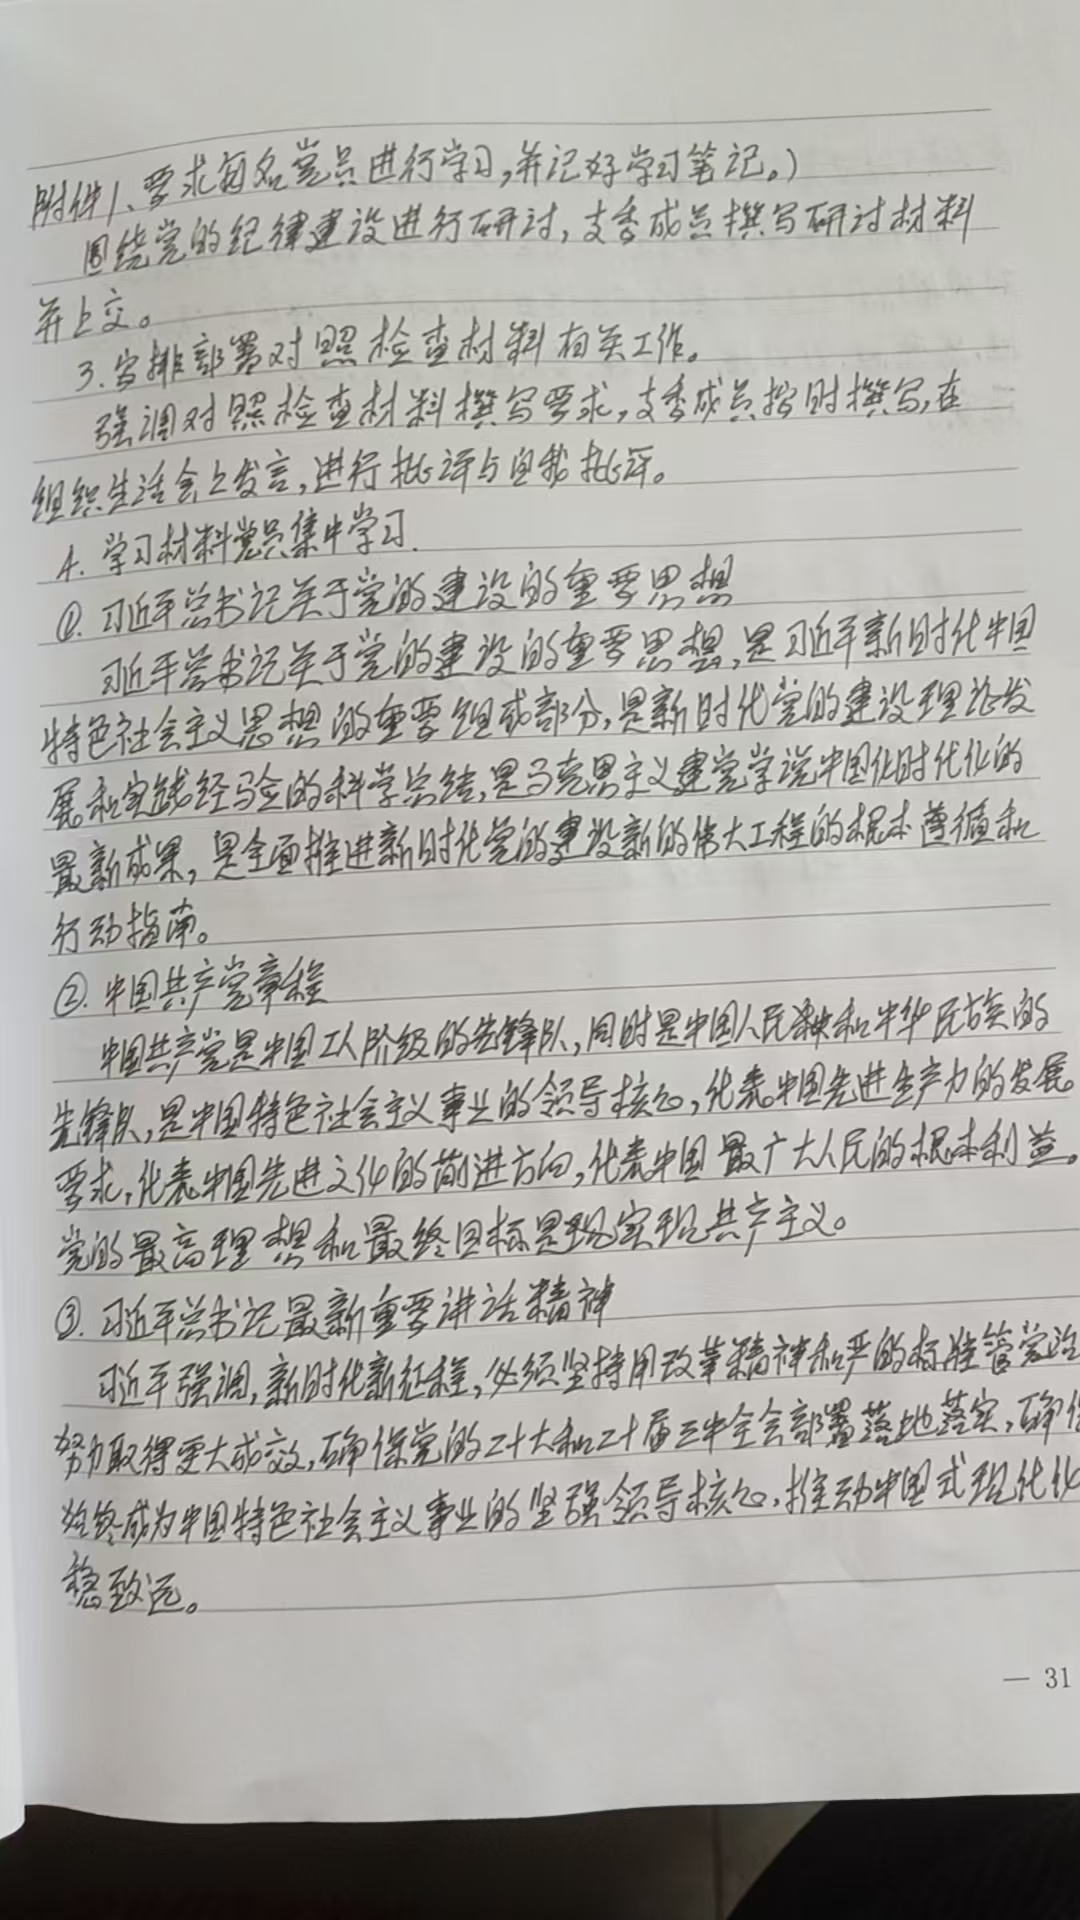 附件1、要求每名党员进行学习,并记好学习笔记。)
围绕党的纪律建设进行研讨,支委成员撰写研讨材料
并上交。
3.安排部署对照检查材料相关工作。
强调对照检查材料撰写要求,支委成员按时撰写,在
组织生活会上发言,进行批评与自我批评。
4.学习材料党员集中学习.
①.习近平总书记关于党的建设的重要思想
习近平总书记关于党的建设的重要思想,是习近平新时代中国
特色社会主义思想的重要组成部分,是新时代党的建设理论发
展和实践经验的科学总结,是马克思主义建党学说中国化时代化的
最新成果,是全面推进新时代党的建设新的伟大工程的根本遵循和
行动指南。
②.中国共产党章程
中国共产党是中国工人阶级的先锋队,同时是中国人民和中华民族的
先锋队,是中国特色社会主义事业的领导核心,代表中国先进生产力的发展
要求,代表中国先进文化的前进方向,代表中国最广大人民的根本利益。
党的最高理想和最终目标是实现共产主义。
③.习近平总书记最新重要讲话精神
习近平强调,新时代新征程,必须坚持用改革精神和严的标准管党治
努力取得更大成效,确保党的二十大和二十届三中全会部署落地落实,确保
始终成为中国特色社会主义事业的坚强领导核心,推动中国式现代化
稳致远。
— 31